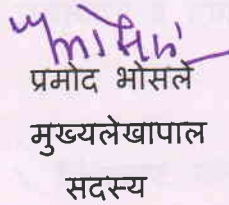 प्रमोद भोसले
मुख्यलेखापाल
सदस्य